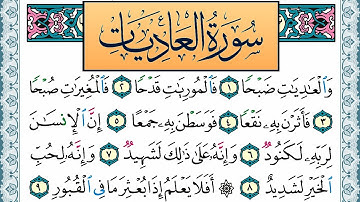 سُورَةُ الْعَادِيَاتِ
وَالْعَادِيَاتِ ضَبْحًا ١ فَالْمُورِيَاتِ قَدْحًا ٢ فَالْمُغِيرَاتِ صُبْحًا
٣ فَأَثَرْنَ بِهِ نَقْعًا ٤ فَوَسَطْنَ بِهِ جَمْعًا ٥ إِنَّ الْإِنسَانَ
لِرَبِّهِ لَكَنُودٌ ٦ وَإِنَّهُ عَلَىٰ ذَٰلِكَ لَشَهِيدٌ ٧ وَإِنَّهُ لِحُبِّ
الْخَيْرِ لَشَدِيدٌ ٨ ۞ أَفَلَا يَعْلَمُ إِذَا بُعْثِرَ مَا فِي الْقُبُورِ ٩